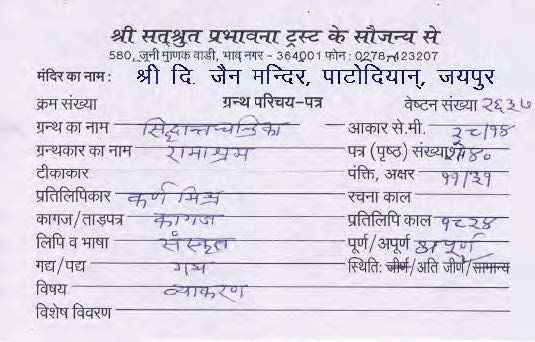 श्री सत्श्रुत प्रभावना ट्रस्ट के सौजन्य से
580, जूनी माणक वाडी, भाव नगर - 364001 फोन : 0278-423207
मंदिर का नाम : श्री दि. जैन मन्दिर, पाटोदियान्, जयपुर
क्रम संख्या ग्रन्थ परिचय-पत्र वेष्टन संख्या २६३७
ग्रन्थ का नाम सिद्धान्तचन्द्रिका आकार से.मी. ३८/१४
ग्रन्थकार का नाम रामाश्रम पत्र (पृष्ठ) संख्या ४०
टीकाकार पंक्ति, अक्षर ११/३१
प्रतिलिपिकार कर्ण मिश्र रचना काल
कागज/ताड़पत्र कागज प्रतिलिपि काल १८२४
लिपि व भाषा संस्कृत पूर्ण/अपूर्ण अपूर्ण
गद्य/पद्य गद्य स्थिति: जीर्ण/अति जीर्ण/सामान्य
विषय व्याकरण
विशेष विवरण